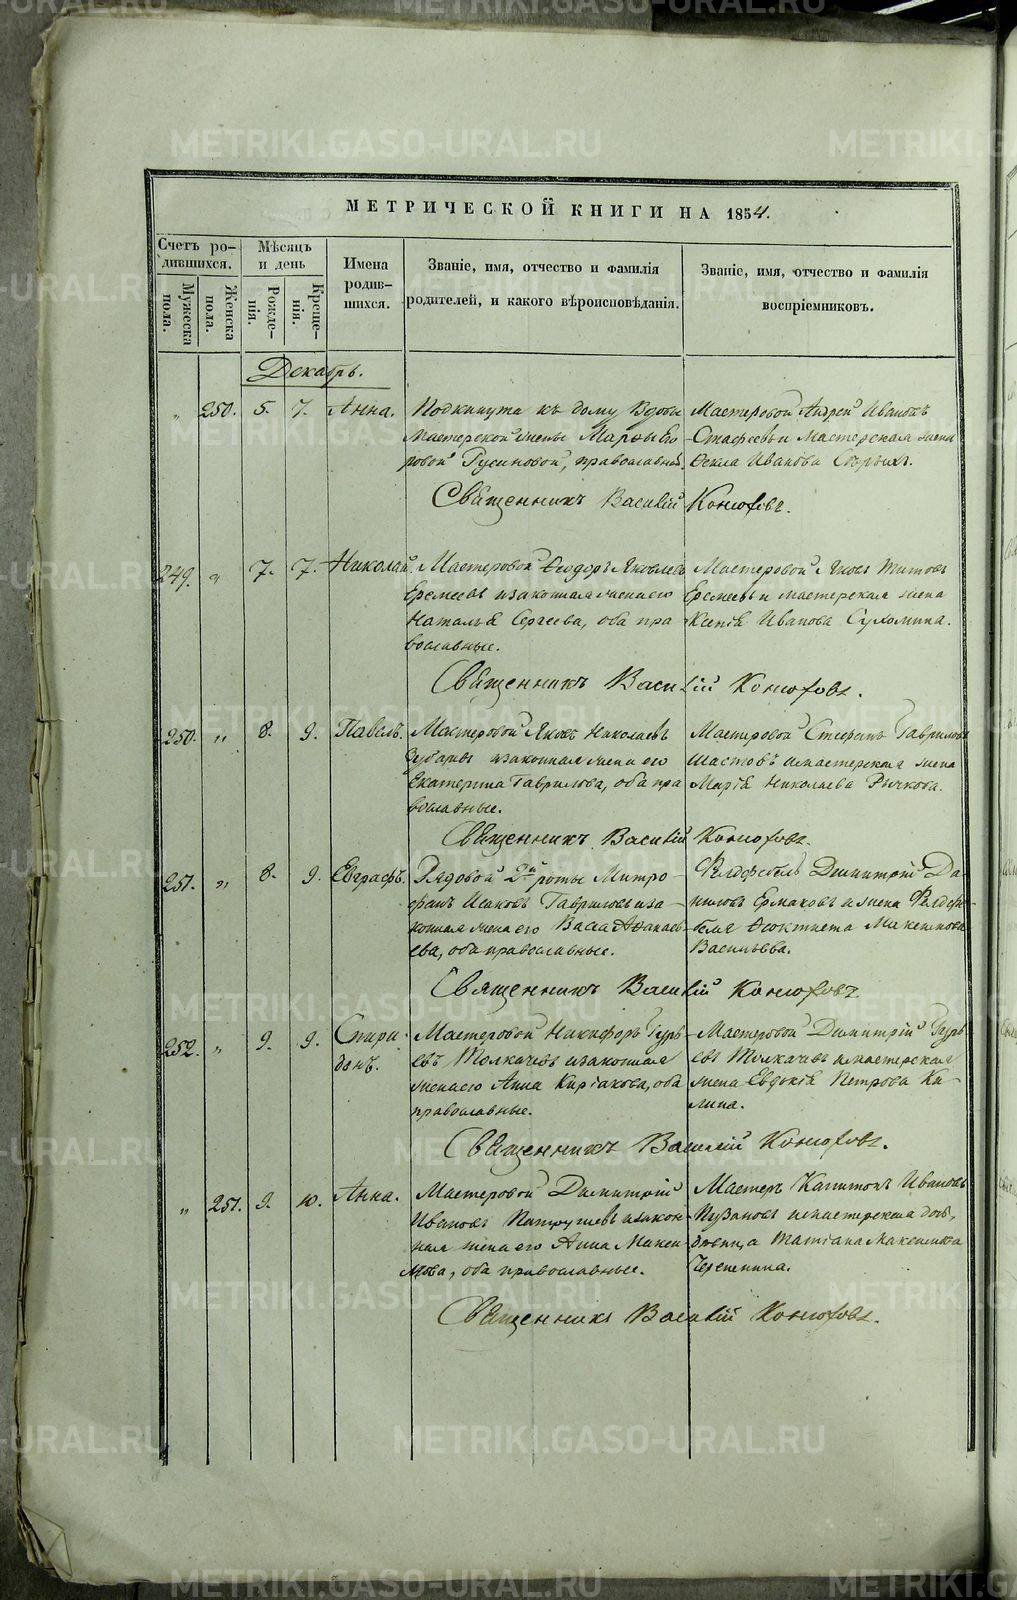 МЕТРИЧЕСКОЙ КНИГИ НА 1854.
Счетъ ро-
дившихся.
Мужеска
пола.
Женска
пола.
Мѣсяцъ
и день
Рожде-
нія.
Креще-
нія.
Имена
родив-
шихся.
Званіе, имя, отчество и фамилія
родителей, и какого вѣроисповѣданія.
Званіе, имя, отчество и фамилія
воспріемниковъ.
Декабрь.
„ 250. 5. 7. Анна.
Подкинута къ дому Вдовы
Мастерской жены Марѳы Его
ровой Русиновой, православной
Мастеровой Андрей Ивановъ
Стафеевъ и мастерская жена
Ѳекла Иванова
Священникъ Василій Конюховъ.
249. „ 7. 7. Николай.
Мастеровой Ѳеодоръ Яковлевъ
Еремеевъ и законная жена его
Наталья Сергеева, оба пра
вославные.
Мастеровой Яковъ Титовъ
Еремеевъ и мастерская жена
Ксенія Иванова Сухомина.
Священникъ Василій Конюховъ.
250. „ 8. 9. Павелъ.
Мастеровой Яковъ Николаевъ
Зубаревъ и законная жена его
Екатерина Гаврилова, оба пра
вославные.
Мастеровой Стефанъ Гавриловъ
Шастовъ и мастерская жена
Марія Николаева Рычкова.
Священникъ Василій Конюховъ.
251. „ 8. 9. Евграфъ.
Рядовой 2й роты Митро-
фанъ Исаковъ Гавриловъ и за-
конная жена его Васса Аѳанасье-
ева, оба православные.
Фелдфебель Димитрій Да-
ниловъ Ермаковъ и жена Фелдфе-
беля Ѳеоктиста Максимова
Васильева.
Священникъ Василій Конюховъ
252. „ 9. 9. Спири-
донъ.
Мастеровой Никифоръ Гурь-
евъ Толкачевъ и законная
жена его Анна Киріакова, оба
православные.
Мастеровой Димитрій Гурь-
евъ Толкачевъ и мастерская
жена Евдокія Петрова Ки-
лина.
Священникъ Василій Конюховъ.
„ 251. 9. 10. Анна.
Мастеровой Димитрій
Ивановъ Патрушевъ и закон-
ная жена его Анна Макси-
мова, оба православные.
Мастеръ Капитонъ Ивановъ
Пузановъ и мастерская доч.
девица Татіана Максимова
Черепенина.
Священникъ Василій Конюховъ.
METRIKI.GASO-URAL.RU